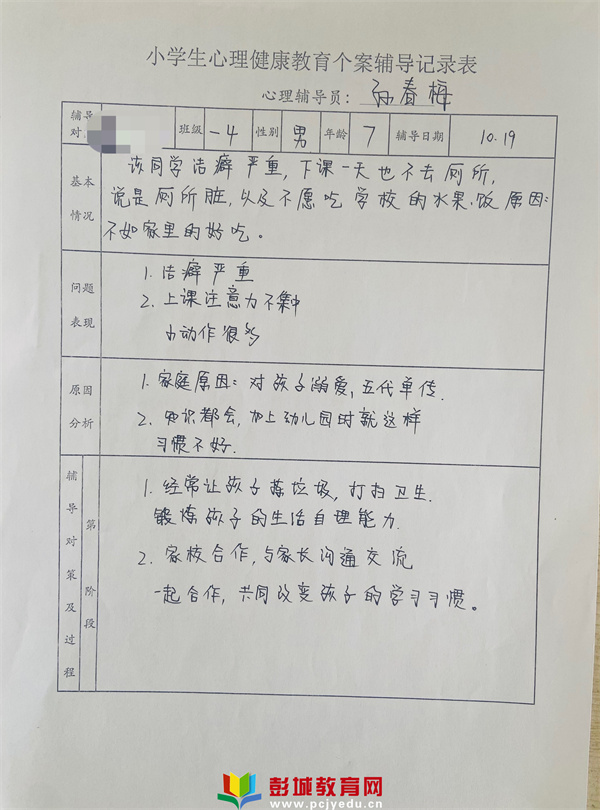 小学生心理健康教育个案辅导记录表
心理辅导员：孙春梅
辅导对 班级 一4 性别 男 年龄 7 辅导日期 10.19
基本情况
该同学洁癖严重，下课一天也不去厕所，
说是厕所脏，以及不愿吃学校的水果、饭 原因：
不如家里的好吃。
问题表现
1. 洁癖严重
2. 上课注意力不集中
小动作很多
原因分析
1. 家庭原因：对孩子溺爱，五代单传.
2. 知识都会，加上幼儿园时就这样
习惯不好.
辅导对策及过程
第 阶段
1. 经常让孩子荡垃圾，打扫卫生.
锻炼孩子的生活自理能力.
2. 家校合作，与家长沟通交流
一起合作，共同改变孩子的学习习惯。
彭城教育网
www.pcjyedu.cn